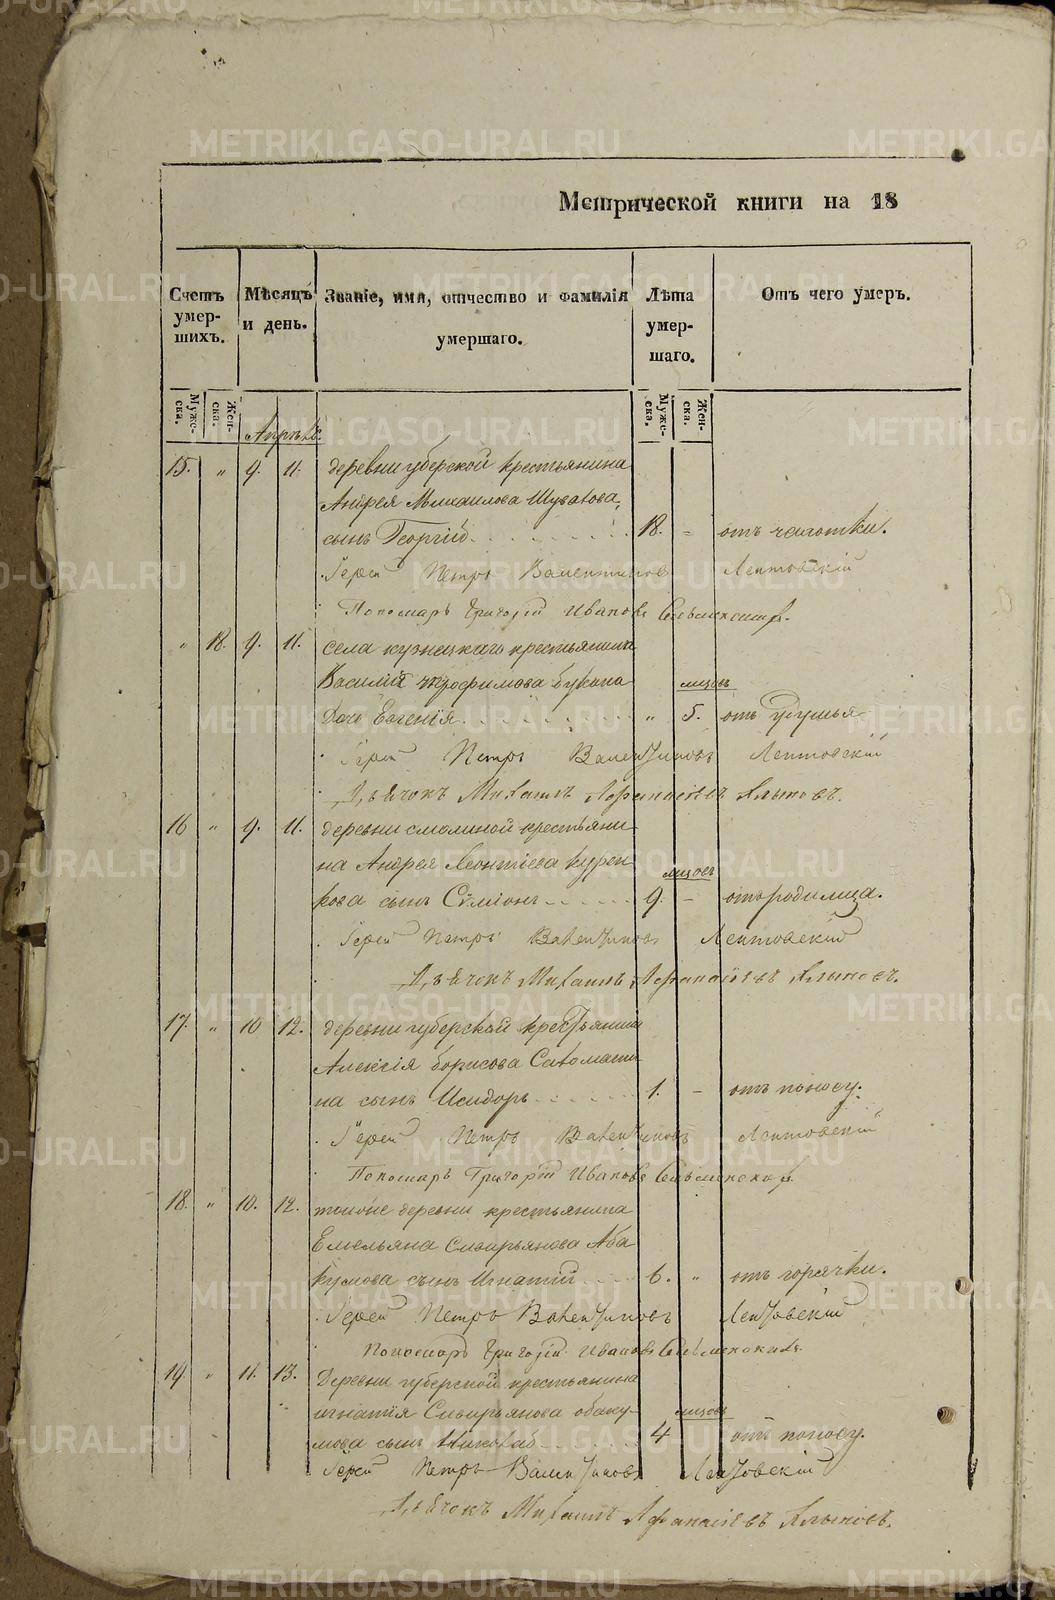 Метрической книги на 18
Счетъ умер-шихъ.
Мѣсяцъ и день.
Званіе, имя, отчество и фамилія умершаго.
Лѣта умер-шаго.
Отъ чего умеръ.
Муже-ска. Жен-ска.
Муже-ска. Жен-ска.
Апрѣль
15. " 9. 11. деревни губерской крестьянина
Андрея Михаилова Шуватова,
сынъ Георгій 18. - отъ чахотки.
Іерей Петръ Валентиновъ Лептовскій
Пономарь Григорій Ивановъ
" 18. 9. 11. села кузнецкаго крестьянина
Василія трофимова букина
мѣсяцовъ
Дочь Евгенія " 5. отъ удушья
Іерей Петръ Валентиновъ Лептовскій
Дьячокъ Михаилъ Афанасіевъ Алыповъ.
16 " 9. 11. деревни смолиной крестьяни-
на Андрея Леонтіева Курен-
кова сынъ Сѵмеонъ 9. - отъ родимца.
Іерей Петръ Валентиновъ Лептовскій
Дьячокъ Михаилъ Афанасіевъ Алыповъ.
17. " 10 12. деревни губерской крестьянина
Алексія борисова Саломати-
на сынъ Исидоръ 1. - отъ поносу.
Іерей Петръ Валентиновъ Лептовскій
Пономарь Григорій Ивановъ
18. " 10. 12. тойже деревни крестьянина
Емельяна Сивирьянова Аба
кумова сынъ Игнатій 6. " отъ горячки.
Іерей Петръ Валентиновъ Лептовскій
Пономарь Григорій Ивановъ
19 " 11. 13. Деревни губерской крестьянина
игнатія Сивирьянова абаку-
мова сынъ Николай 4 отъ поносу.
Іерей Петръ Валентиновъ Лептовскій
Дьячокъ Михаилъ Афанасіевъ Алыповъ.
METRIKI.GASO-URAL.RU